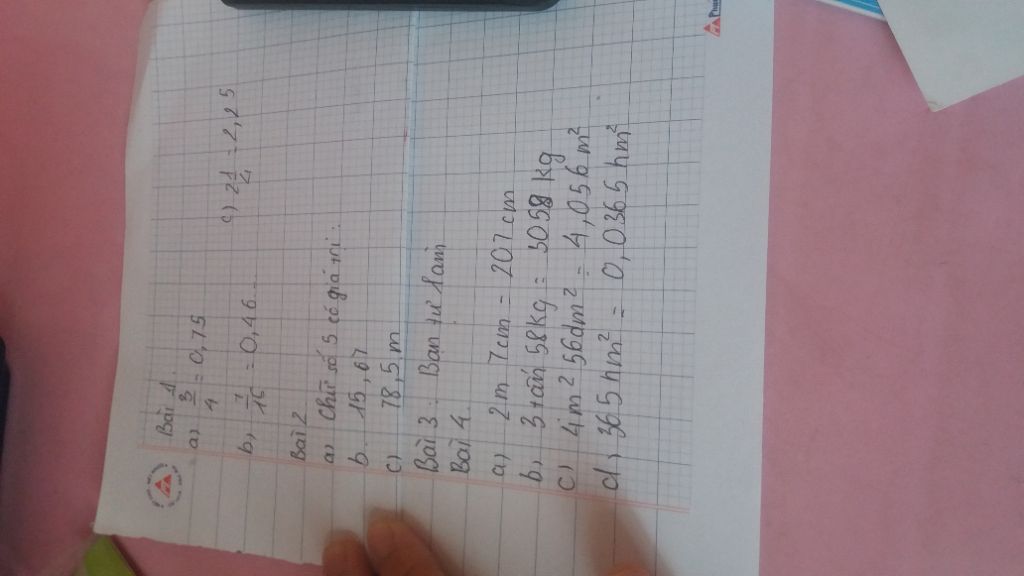 Bài 1.
a) 3/4 = 0,75
c) 2 1/4 = 2,25
b, 7/15 = 0,46...
Bài 2
a) Chữ số 5 có giá trị:
b. 15,67
c) 78,5 m
Bài 3: Bạn tự làm
Bài 4
a) 2m 7cm = 207 cm
b, 3 tấn 58kg = 3058 kg
c, 4 m² 56dm² = 4,056 m²
d, 365 hm² = 0,0365 hm²